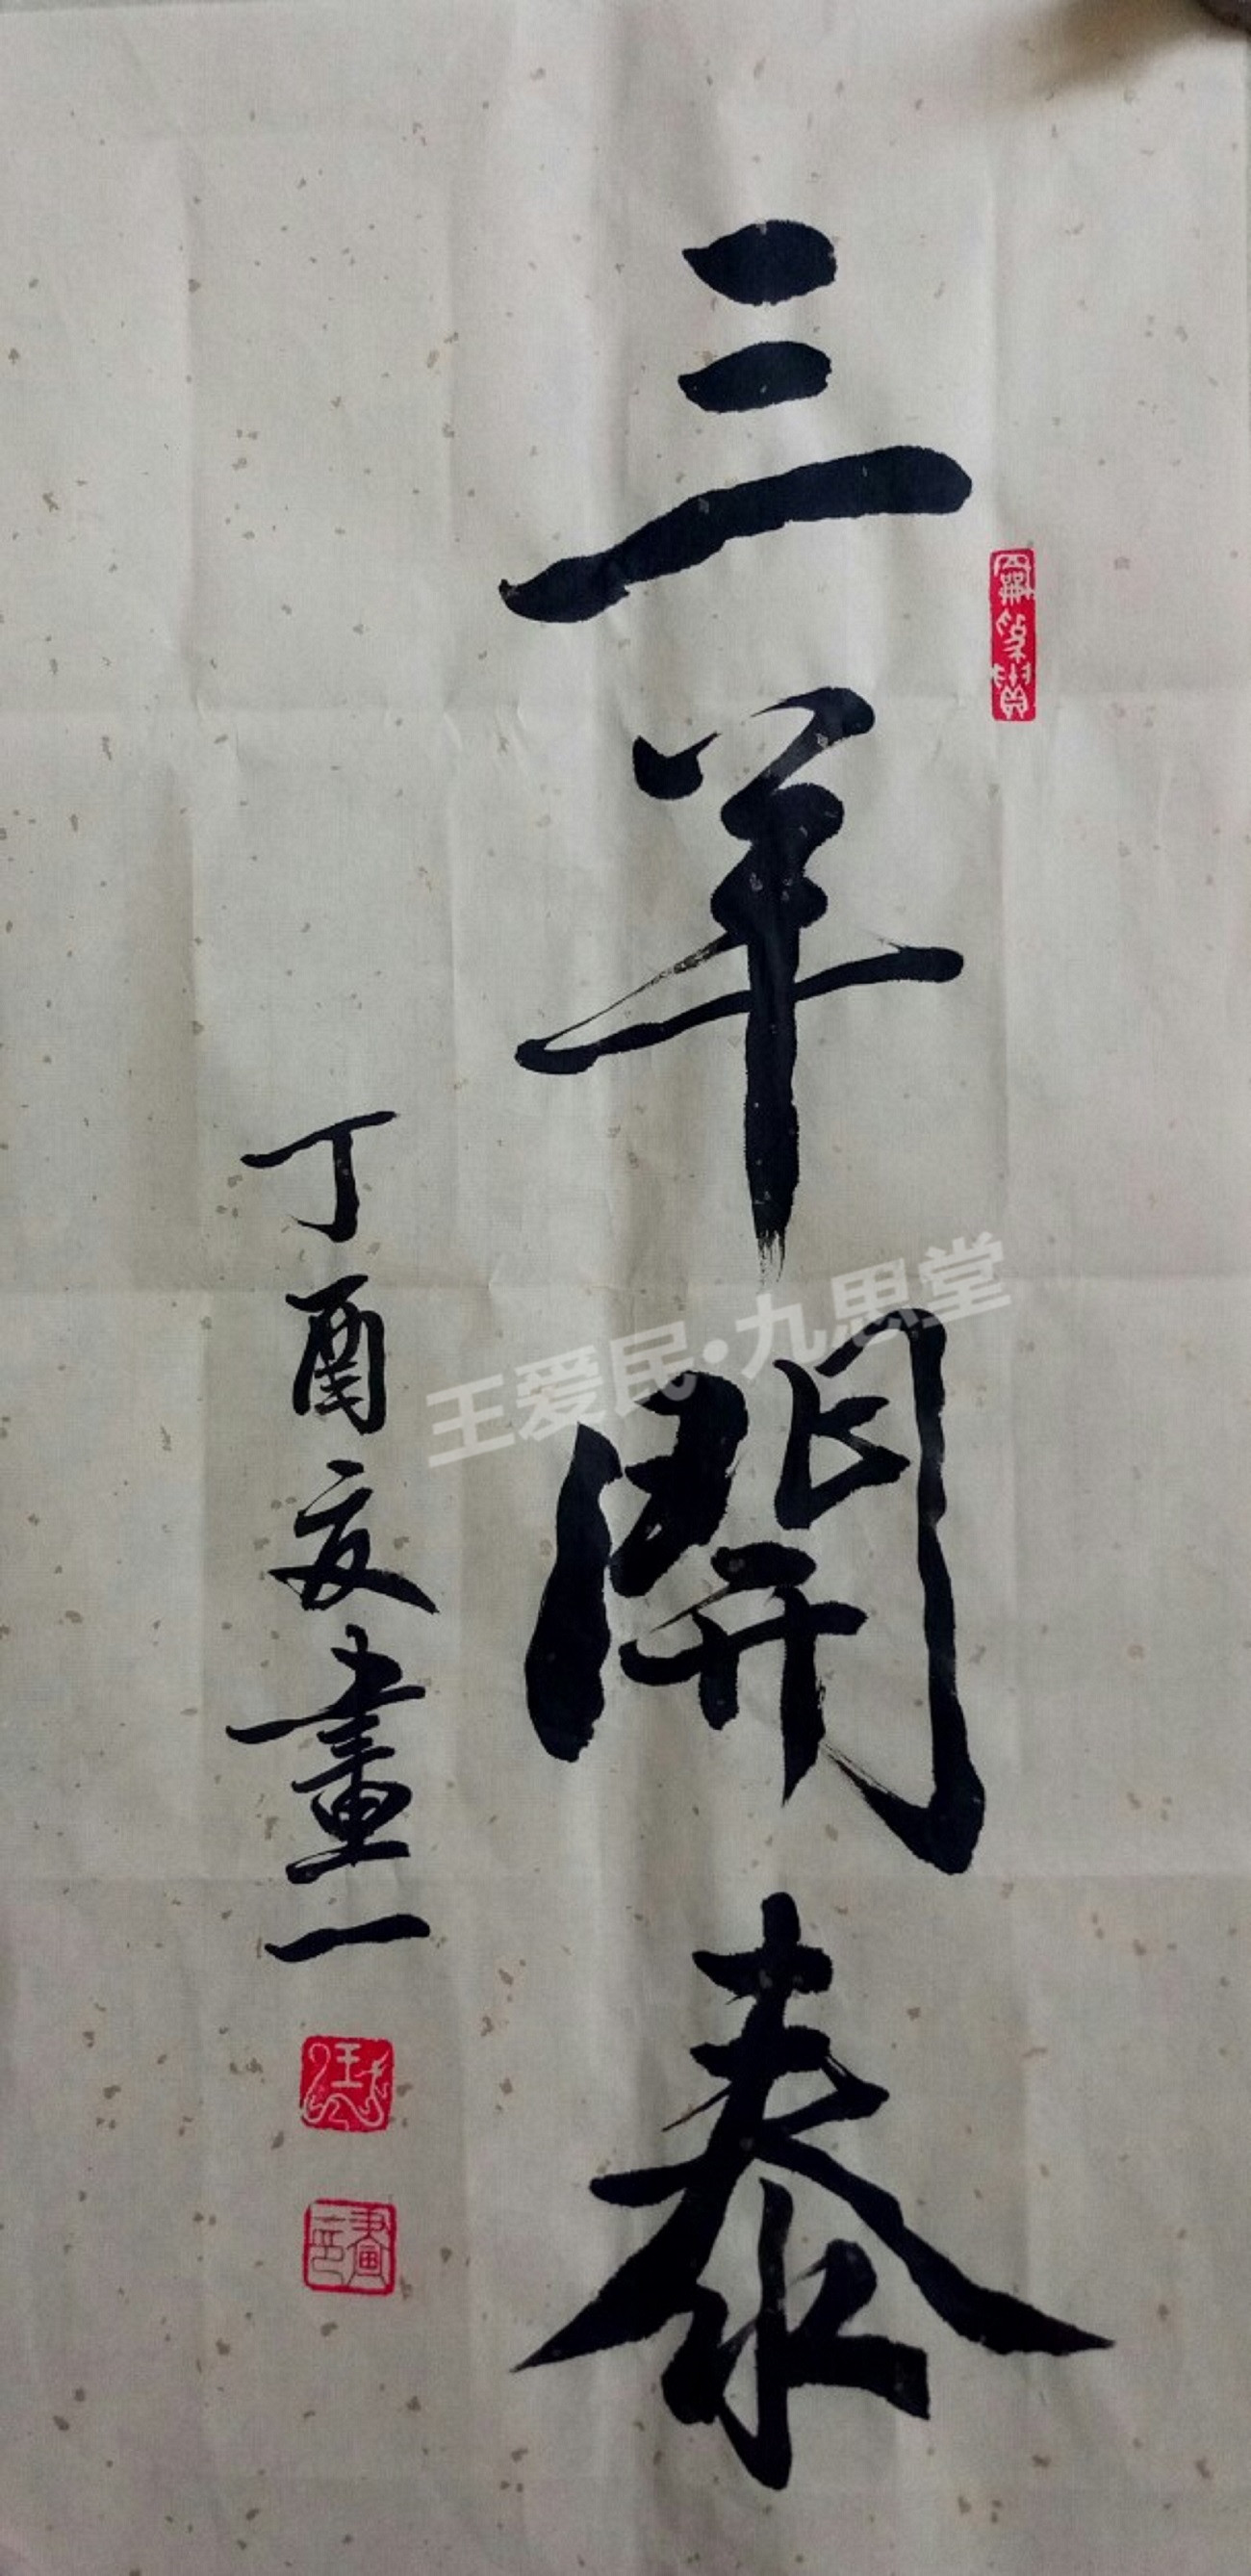 三羊開泰
丁酉夏畫一
王爱民·九思堂